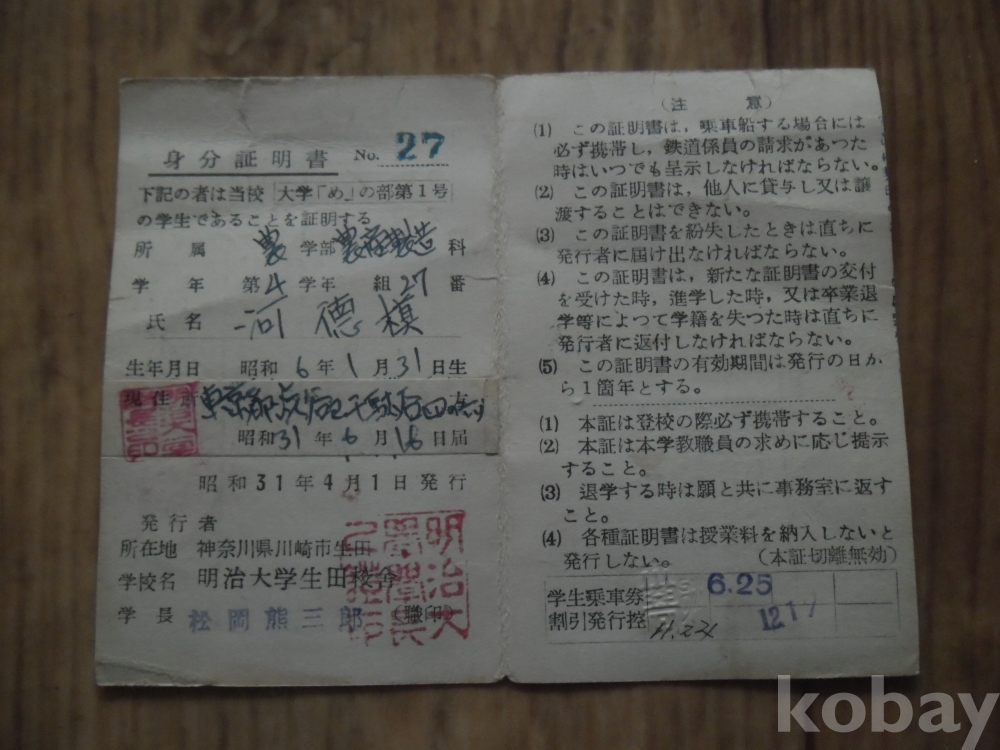 身分証明書 No. 27
下記の者は当校 大学「め」の部第1号
の学生であることを証明する
所属 農学部 農産製造科
学年 第4学年 組27番
氏名 河徳模
生年月日 昭和6年1月31日生
現住所 東京都渋谷区千駄谷四
昭和31年6月16日届
昭和31年4月1日発行
発行者
所在地 神奈川県川崎市生田
学校名 明治大学生田校舎
学長 松岡熊三郎 (職印)
(注意)
(1) この証明書は,乗車船する場合には
必ず携帯し,鉄道係員の請求があつた
時はいつでも呈示しなければならない。
(2) この証明書は,他人に貸与し又は譲
渡することはできない。
(3) この証明書を紛失したときは直ちに
発行者に届け出なければならない。
(4) この証明書は,新たな証明書の交付
を受けた時,進学した時,又は卒業退
学等によつて学籍を失つた時は直ちに
発行者に返付しなければならない。
(5) この証明書の有効期間は発行の日か
ら1箇年とする。
(1) 本証は登校の際必ず携帯すること。
(2) 本証は本学教職員の求めに応じ提示
すること。
(3) 退学する時は願と共に事務室に返す
こと。
(4) 各種証明書は授業料を納入しないと
発行しない。 (本証切離無効)
学生乗車券 6.25
割引発行控 12 17
kobay